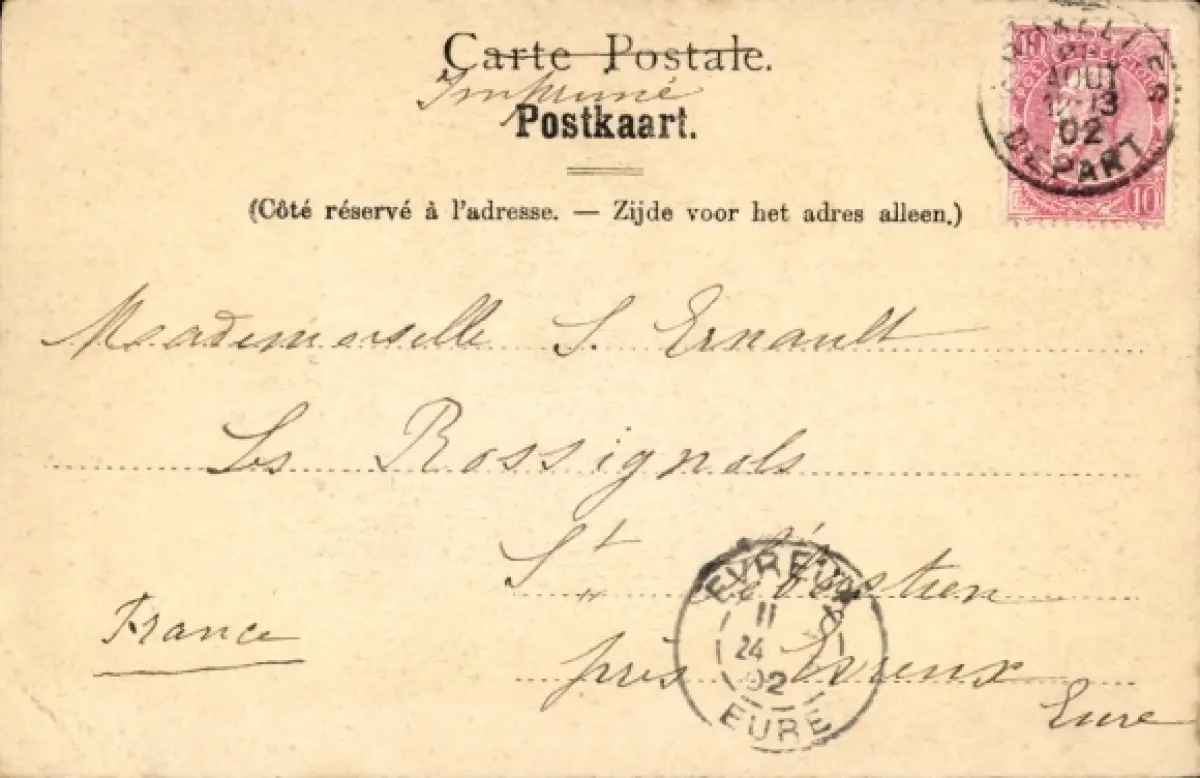 Carte Postale.
Imprimé
Postkaart.
(Côté réservé à l'adresse. — Zijde voor het adres alleen.)
10
AOUT
02
DEPART
10
Mademoiselle S. Ernault
Les Rossignols
St Sébastien
près Evreux
Eure
France
EVREUX
II
24
02
EURE